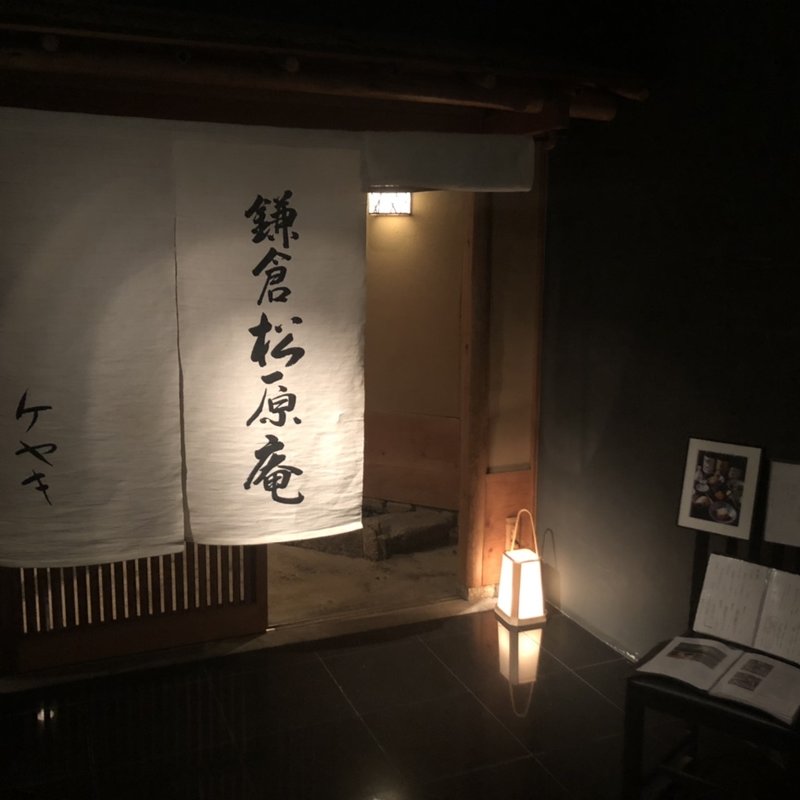 鎌倉松原庵
ケヤキ